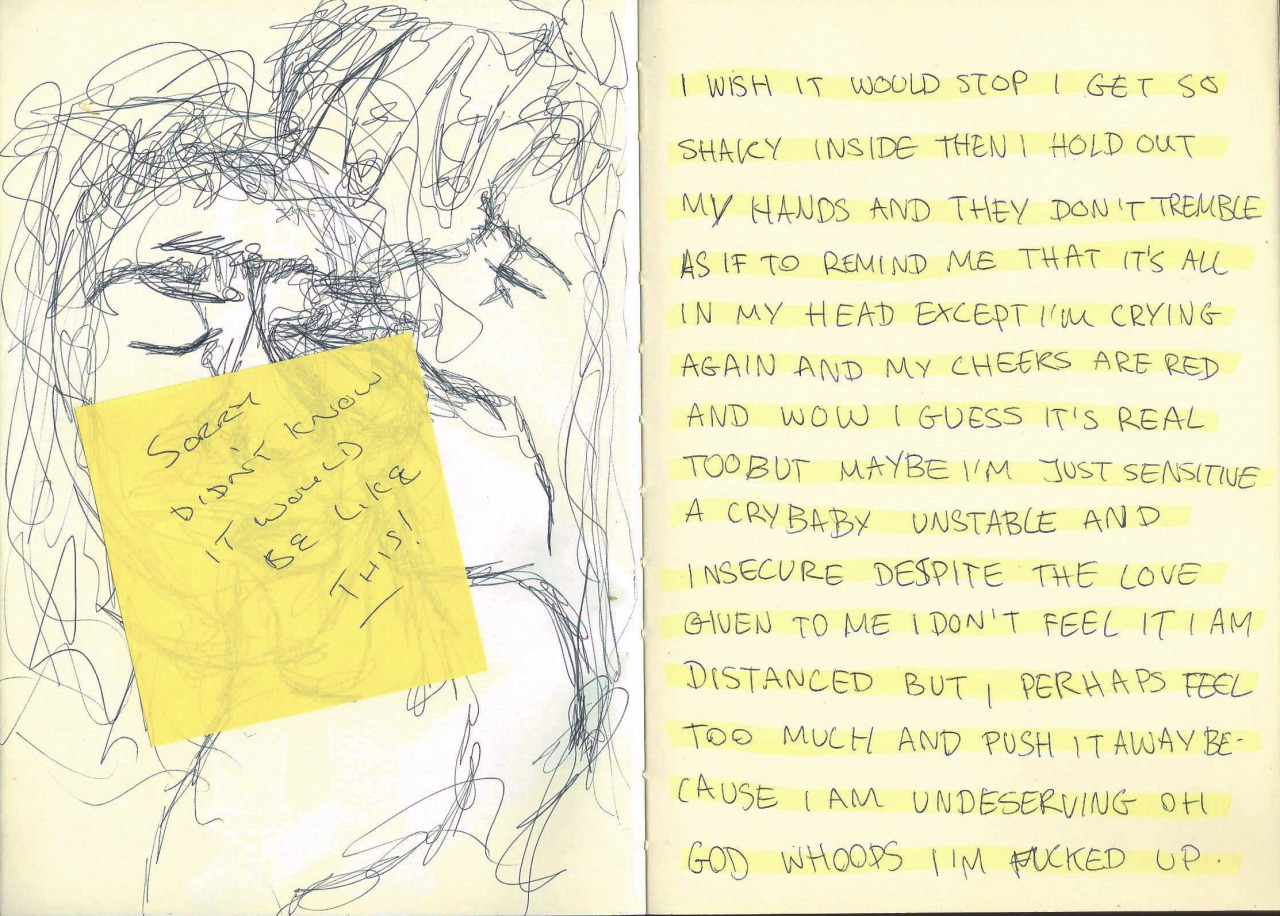 SORRY
DIDN'T KNOW
IT WOULD
BE LIKE
THIS!
I WISH IT WOULD STOP I GET SO
SHAKY INSIDE THEN I HOLD OUT
MY HANDS AND THEY DON'T TREMBLE
AS IF TO REMIND ME THAT IT'S ALL
IN MY HEAD EXCEPT I'M CRYING
AGAIN AND MY CHEERS ARE RED
AND WOW I GUESS IT'S REAL
TOO BUT MAYBE I'M JUST SENSITIVE
A CRYBABY UNSTABLE AND
INSECURE DESPITE THE LOVE
GIVEN TO ME I DON'T FEEL IT I AM
DISTANCED BUT I PERHAPS FEEL
TOO MUCH AND PUSH IT AWAY BE-
CAUSE I AM UNDESERVING OH
GOD WHOOPS I'M FUCKED UP.